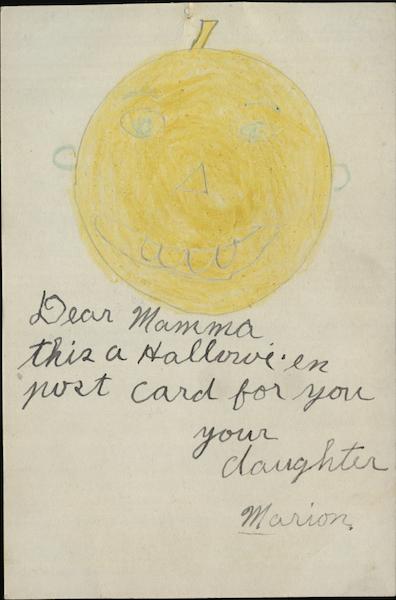 Dear Mamma
this a Hallowe'en
post card for you
your
daughter
Marion.